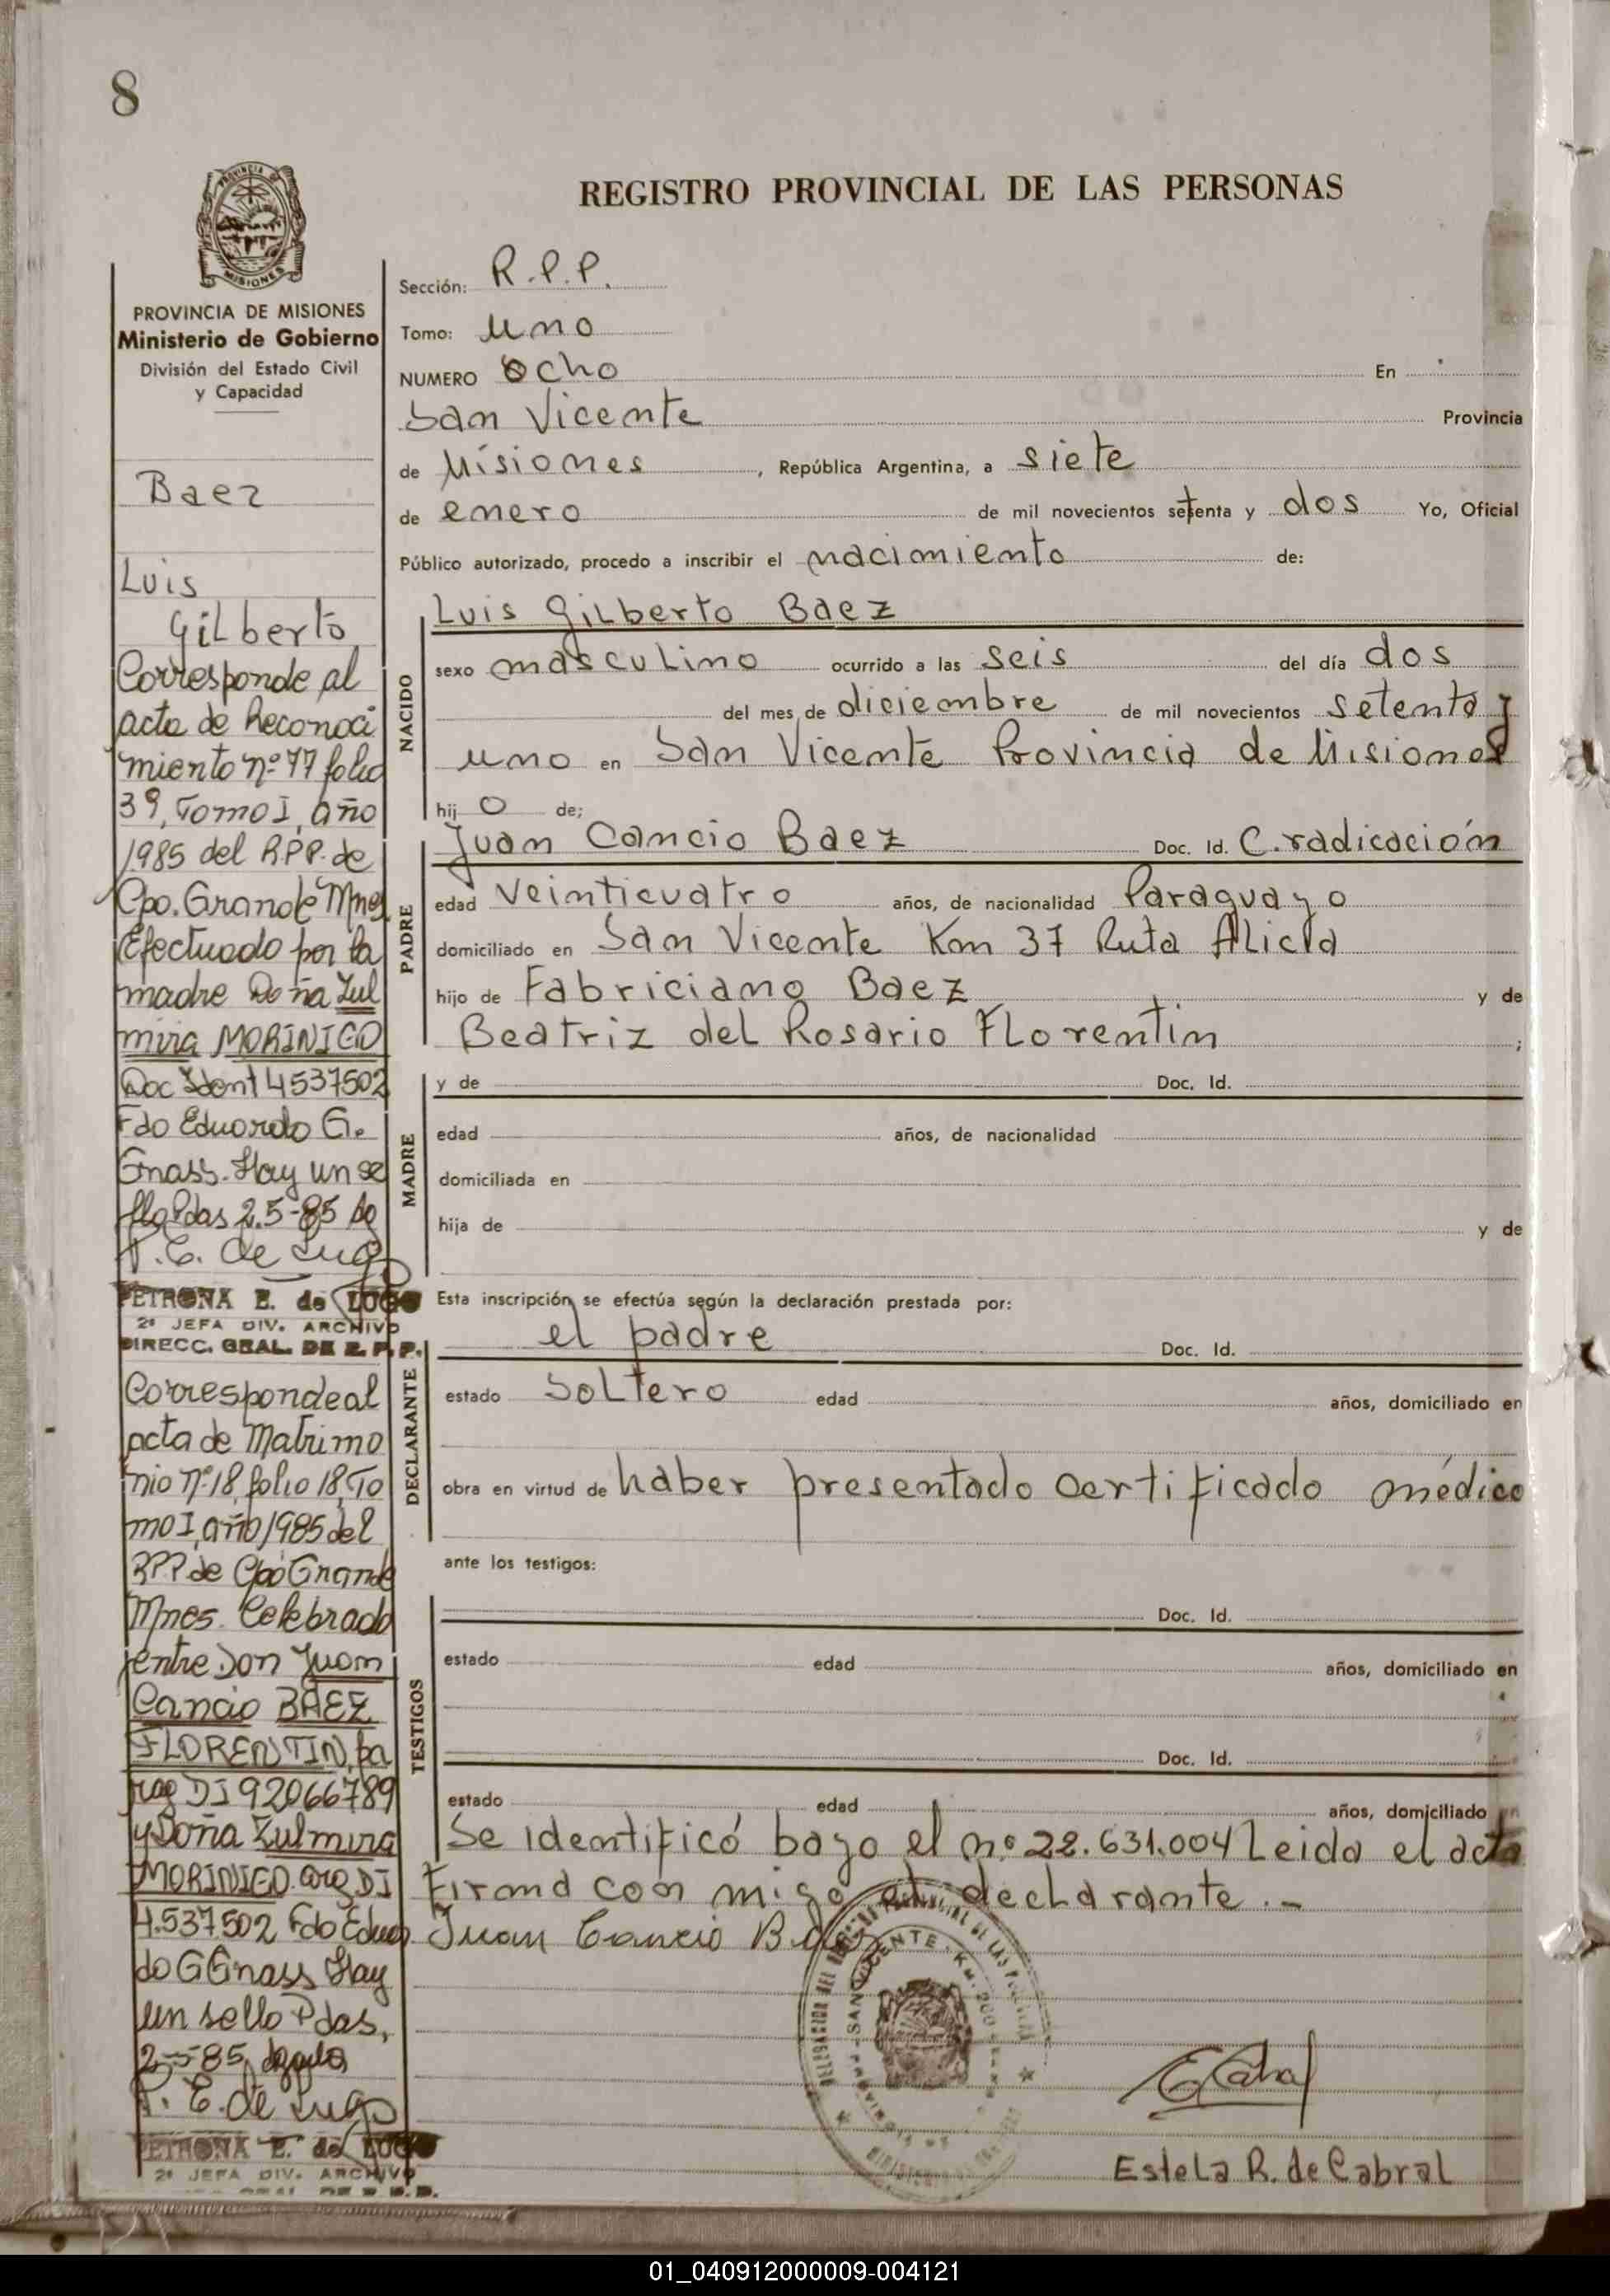 8
PROVINCIA DE MISIONES
Ministerio de Gobierno
División del Estado Civil
y Capacidad
Baez
Luis
Gilberto
Corresponde al
acta de Reconoci
miento nº 77 folio
39, Tomo I, año
1985 del R.P.P. de
Cpo. Grande Mnes
Efectuado por la
madre Doña Zul
mira MORINIGO
Doc Ident 4537502
Fdo Eduardo G.
Gnass. Hay un se
llo Pdas 2.5-85
P. E. de Lugo
PETRONA E. de LUGO
2ª JEFA DIV. ARCHIVO
DIRECC. GRAL. DE R. P. P.
Corresponde al
acta de Matrimo
nio nº 18, folio 18, To
mo I, año 1985 del
RPP de Cpo Grande
Mnes. Celebrado
entre Don Juan
Cancio BAEZ
FLORENTIN, pa
rag DI 92066789
y Doña Zulmira
MORINIGO. arg DI
4.537.502 Fdo Eduar
do G Gnass Hay
un sello Pdas,
P. E. de Lugo
PETRONA E. de LUGO
2ª JEFA DIV. ARCHIVO
GRAL. DE R.P.P.
REGISTRO PROVINCIAL DE LAS PERSONAS
Sección: R.P.P.
Tomo: uno
NUMERO ocho En
San Vicente Provincia
de Misiones, República Argentina, a siete
de enero de mil novecientos setenta y dos Yo, Oficial
Público autorizado, procedo a inscribir el nacimiento de:
NACIDO
Luis Gilberto Baez
sexo masculino ocurrido a las seis del día dos
del mes de diciembre de mil novecientos setenta y
uno en San Vicente Provincia de Misiones
hijo de;
PADRE
Juan Cancio Baez Doc. Id. C. radicación
edad veinticuatro años, de nacionalidad Paraguayo
domiciliado en San Vicente Km 37 Ruta Alicia
hijo de Fabriciano Baez y de
Beatriz del Rosario Florentin ;
MADRE
y de Doc. Id.
edad años, de nacionalidad
domiciliada en
hija de y de
Esta inscripción se efectúa según la declaración prestada por:
DECLARANTE
el padre Doc. Id.
estado Soltero edad años, domiciliado en
obra en virtud de haber presentado certificado médico
ante los testigos:
TESTIGOS
Doc. Id.
estado edad años, domiciliado en
Doc. Id.
estado edad años, domiciliado en
Se identificó bajo el nº 22.631.004 Leida el acta
Firma con migo el declarante.-
Juan Cancio Baez
SAN VICENTE - KM. 200
E Cabral
Estela R. de Cabral
01_040912000009-004121